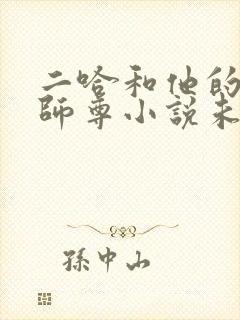 二哈和他的
師尊小說未
孫中山